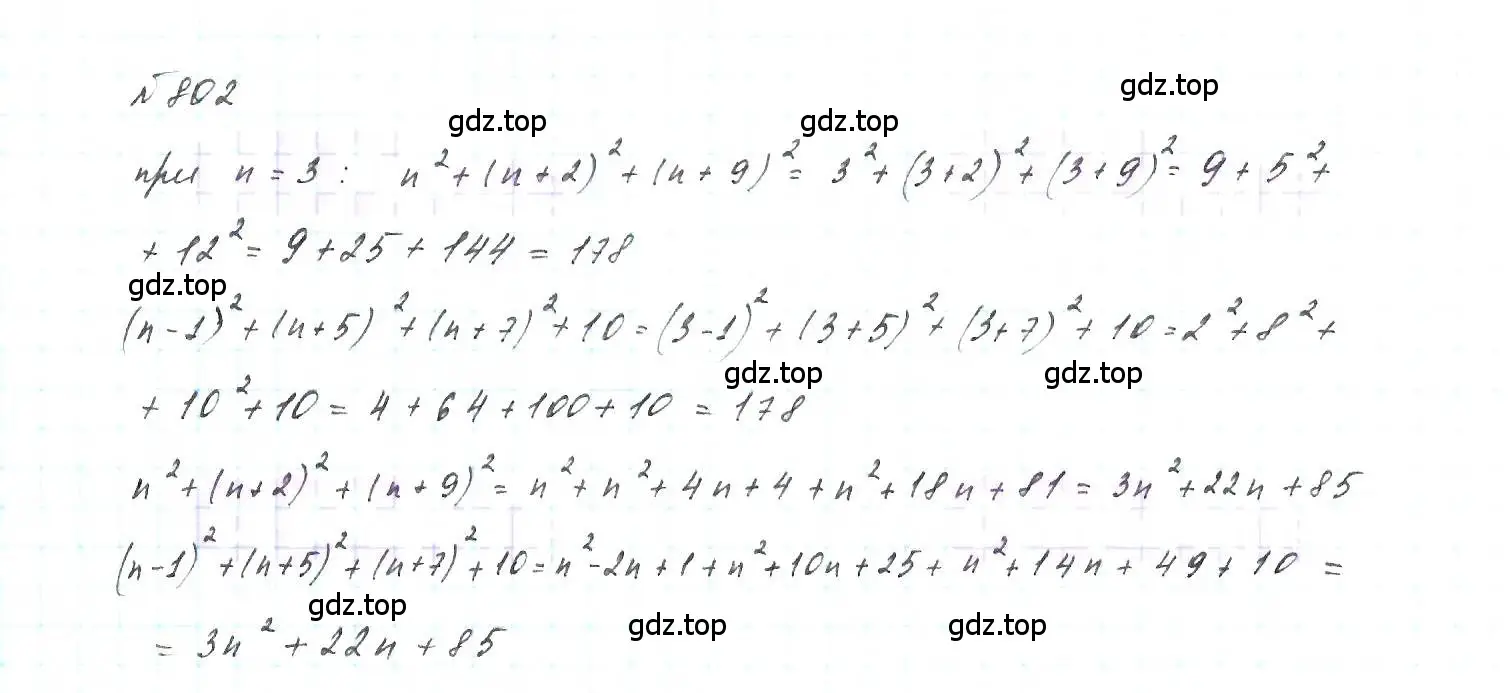 №802
gdz.top
gdz.top gdz.top
при n = 3 : n² + (n + 2)² + (n + 9)² = 3² + (3+2)² + (3+9)² = 9 + 5² +
+ 12² = 9 + 25 + 144 = 178
gdz.top
(n - 1)² + (n + 5)² + (n + 7)² + 10 = (3 - 1)² + (3 + 5)² + (3 + 7)² + 10 = 2² + 8² +
gdz.top gdz.top
+ 10² + 10 = 4 + 64 + 100 + 10 = 178
n² + (n + 2)² + (n + 9)² = n² + n² + 4n + 4 + n² + 18n + 81 = 3n² + 22n + 85
(n - 1)² + (n + 5)² + (n + 7)² + 10 = n² - 2n + 1 + n² + 10n + 25 + n² + 14n + 49 + 10 =
gdz.top gdz.top gdz.top
= 3n² + 22n + 85